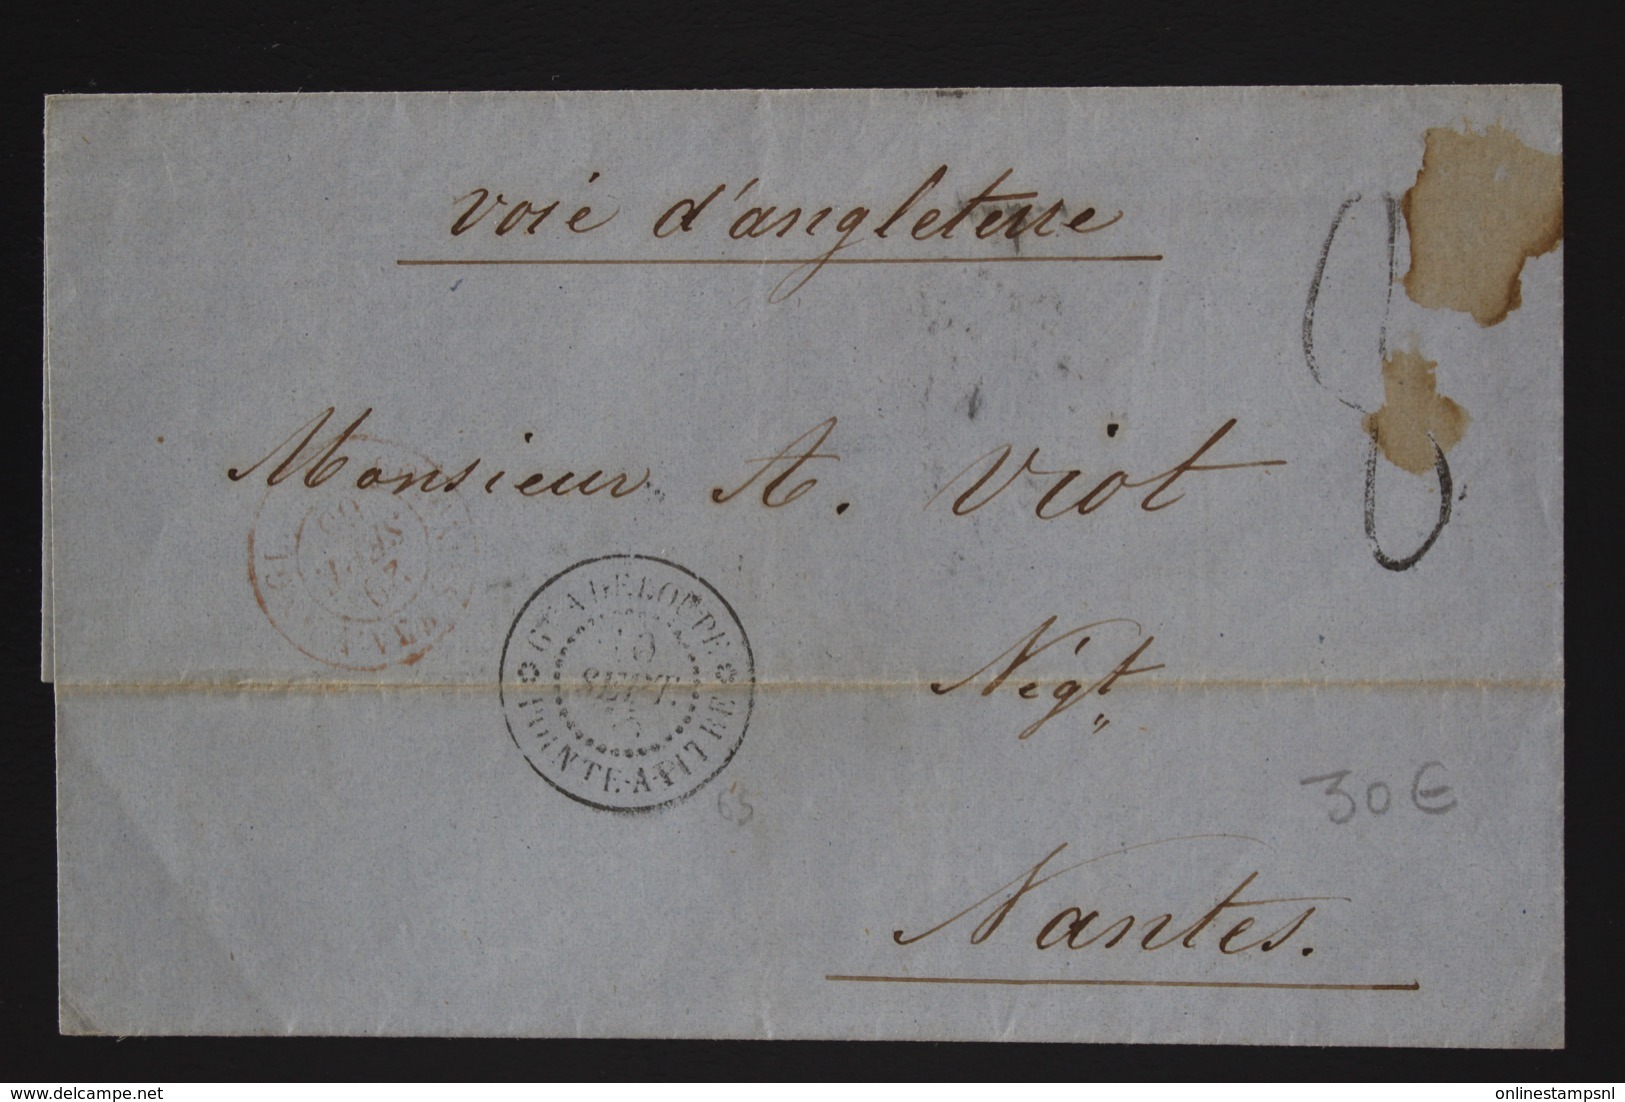 voié d'angleterre
Monsieur A. Viot
Négt
Nantes.
GUADELOUPE
SEPT.
POINTE-A-PITRE
65
30€
8
ANGL.
SEPT.
delcampe.net
onlinestampsnl